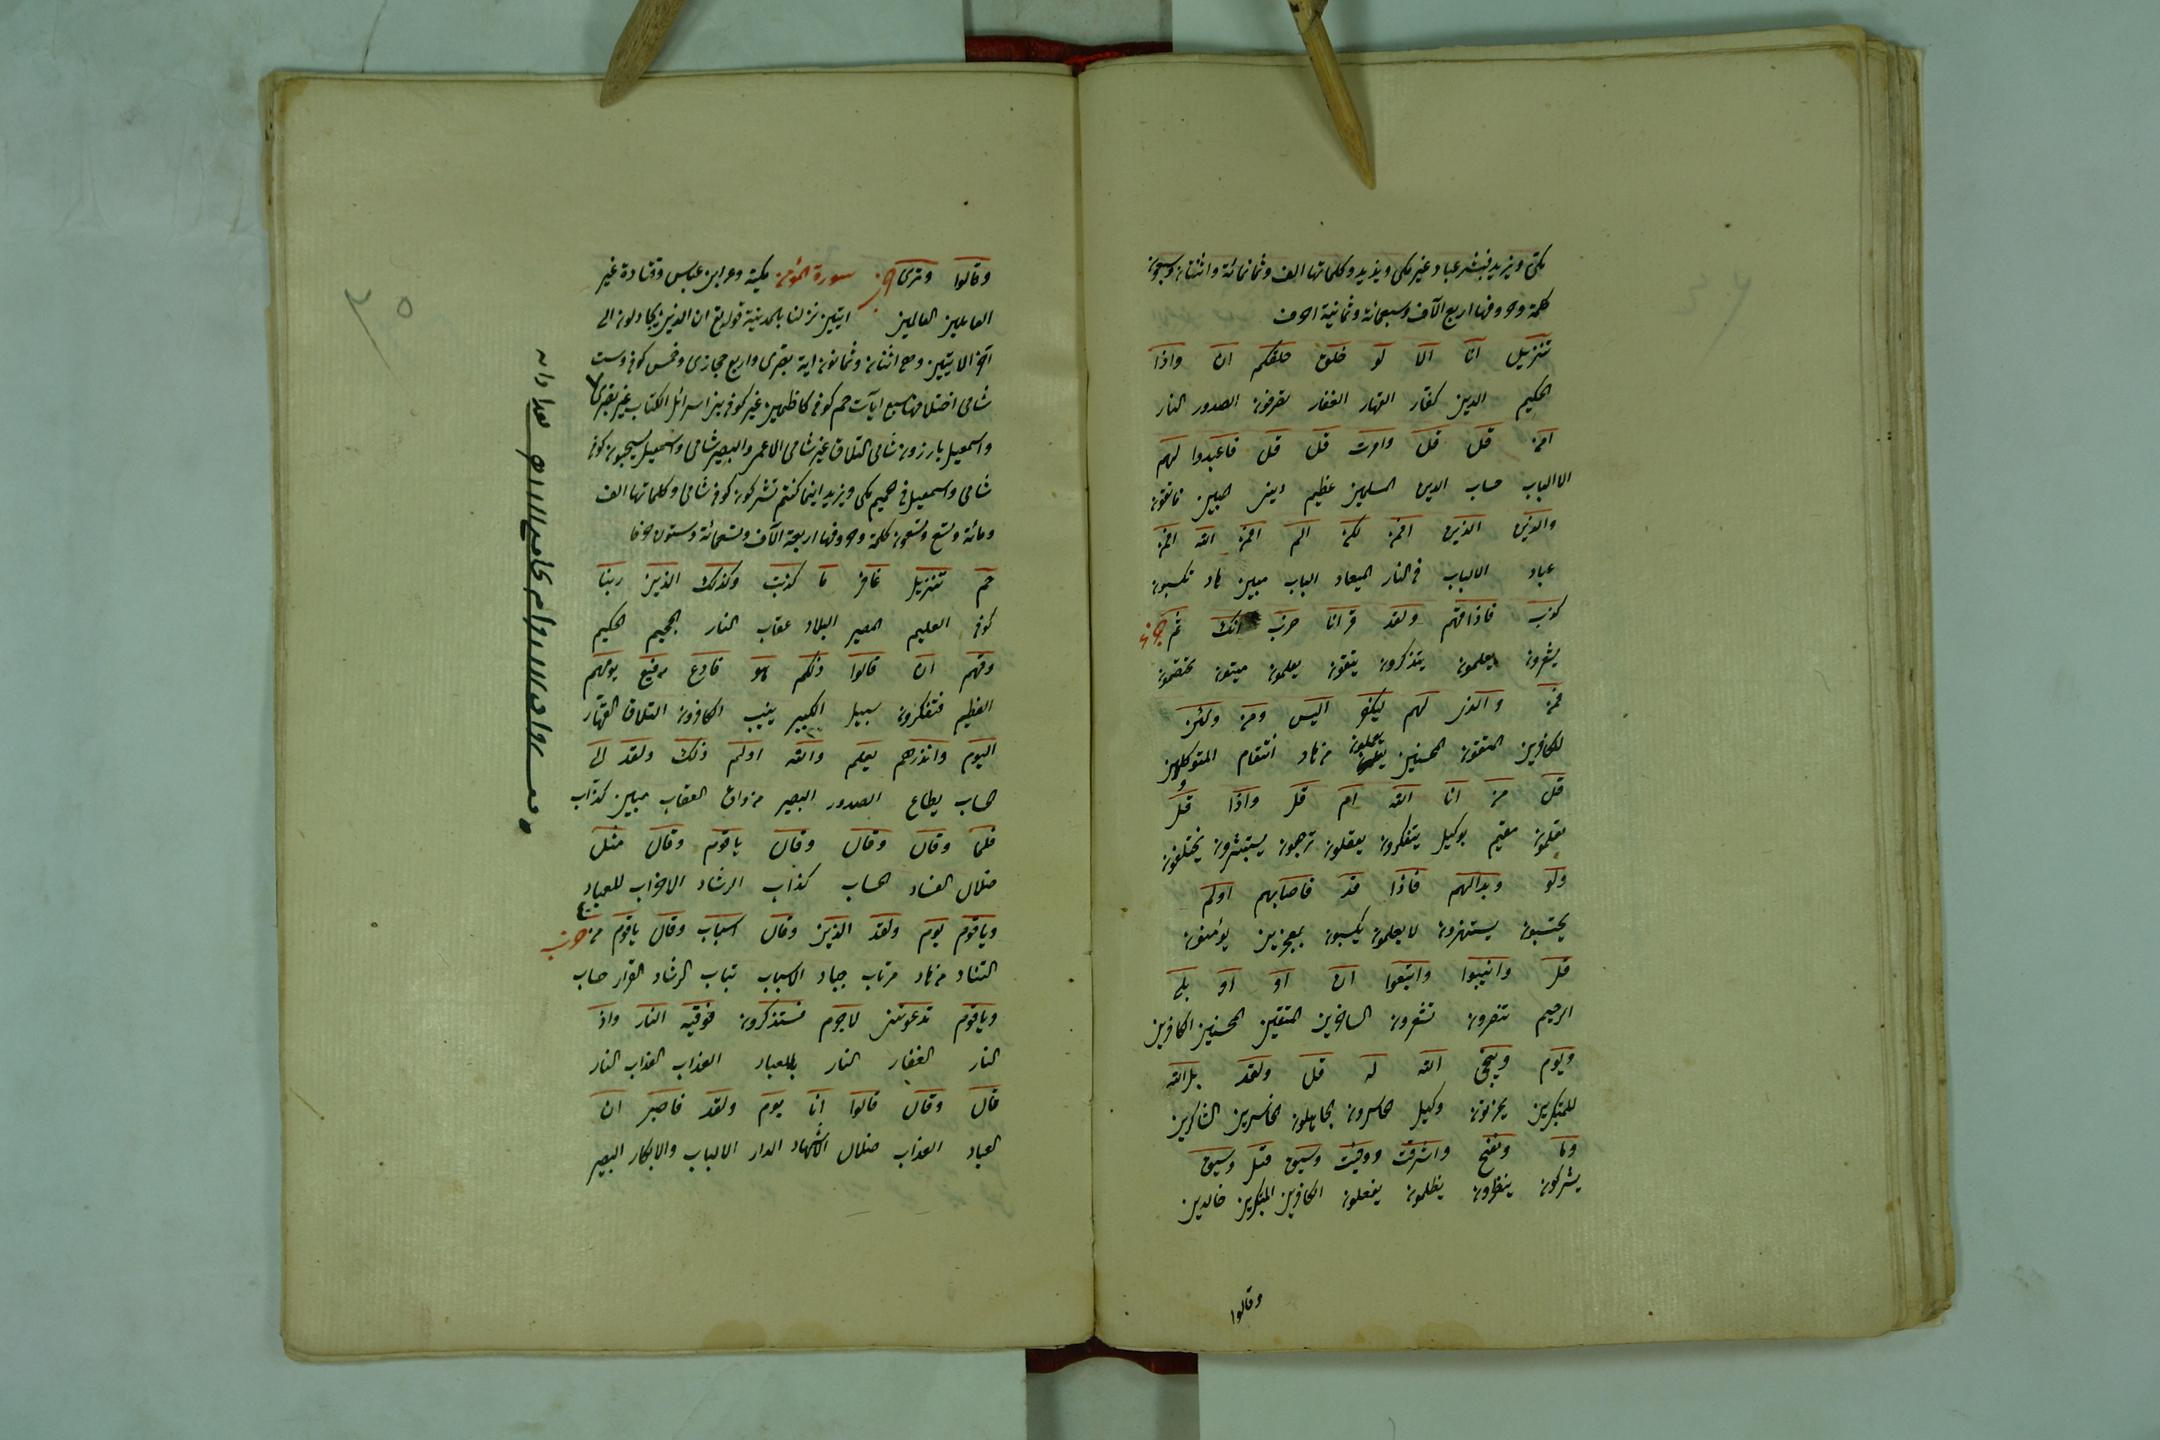 مكى ويزيد فبشر عباد غير مكى ويزيد وكلماتها الف وثمانمائة واثنتان وسبعون
كلمة وحروفها اربع الآف وسبعمائة وثمانية احرف
تنزيل انا الا لو خلق خلقكم ان واذا
الحكيم الدين كفار القهار الغفار تصرفون الصدور النار
امن قل قل وامرت قل قل فاعبدوا لهم
الالباب حساب الدين المسلمين عظيم دينى المبين فاتقون
والذين الذين افمن لكن الم افمن الله افمن
عباد الالباب فى النار الميعاد الباب مبين هاد تكسبون
كذب فاذاقهم ولقد قرانا ضرب انك ثم
يشعرون يعلمون يتذكرون يتقون يعلمون ميتون تختصمون
فمن والذى لهم ليكفر اليس ومن ولئن
للكافرين المتقون المحسنين يعملون من هاد انتقام المتوكلون
قل من انا الله ام قل واذا قل
تعلمون مقيم بوكيل يتفكرون يعقلون ترجعون يستبشرون يختلفون
ولو وبدالهم فاذا قد فاصابهم اولم
يحتسبون يستهزؤن لا يعلمون يكسبون بمعجزين يؤمنون
قل وانيبوا واتبعوا ان او او بلى
الرحيم تنصرون تشعرون الساخرين المتقين المحسنين الكافرين
ويوم وينجى الله له قل ولقد بل الله
للمتكبرين يحزنون وكيل الخاسرون الجاهلون الخاسرين الشاكرين
وما ونفخ واشرقت ووفيت وسيق قيل وسيق
يشركون ينظرون يظلمون يفعلون الكافرين المتكبرين خالدين
وقالوا
وقالوا وترى سورة المؤمن مكية وعن ابن عباس وقتادة غير
العاملين العالمين ايتين نزلنا بالمدينة قوله تع ان الذين يجادلون الى
آخر الايتين وهى اثنتان وثمانون اية بصرى واربع حجازى وخمس كوفى وست
شامى اختلافها سبع ايآت حم كوفى كاظمين غير كوفى بنى اسرائل الكتاب غير بصرى
واسمعيل بارزون شامى التلاق غير شامى الاعمى والبصير شامى واسمعيل يسحبون كوفى
شامى واسمعيل فى الحميم مكى ويزيد اينما كنتم تشركون كوفى شامى وكلماتها الف
ومائة وتسع وتسعون كلمة وحروفها اربعة الآف وتسعمائة وستون حرفا
حم تنزيل غافر ما كذبت وكذلك الذين ربنا
كوفى العليم المصير البلاد عقاب النار الجحيم الحكيم
وقهم ان قالوا ذلكم هو فادع رفيع يوم هم
العظيم فتكفرون سبيل الكبير ينيب الكافرون التلاق القهار
اليوم وانذرهم يعلم والله اولم ذلك ولقد الى
الحساب يطاع الصدور البصير من واق العقاب مبين كذاب
فلما وقال وقال وقال ياقوم وقال مثل
ضلال الفساد الحساب كذاب الرشاد الاحزاب للعباد
وياقوم يوم ولقد الذين وقال اسباب وقال ياقوم من
التناد من هاد مرتاب جبار الاسباب تباب الرشاد القرار حساب
وياقوم تدعوننى لاجرم فستذكرون فوقيه النار واذ
النار الغفار النار بالعباد العذاب العذاب النار
قال وقال قالوا انا يوم ولقد فاصبر ان
العباد العذاب ضلال الاشهاد الدار الالباب والابكار البصير